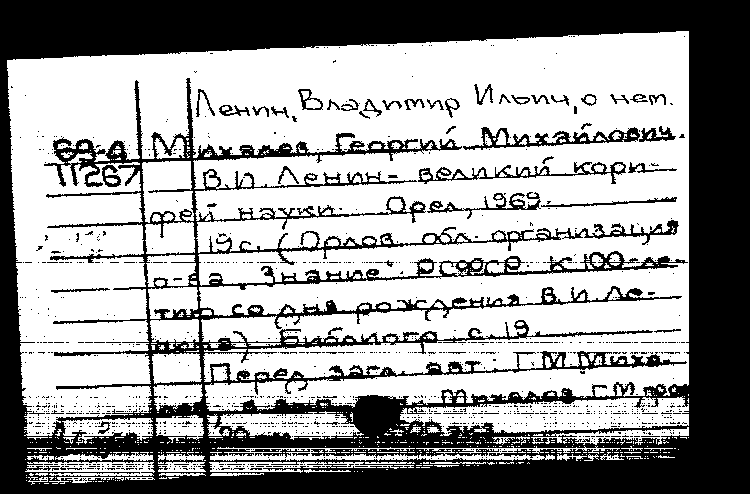 Ленин, Владимир Ильич, о нем.
69-4 Михалев, Георгий Михайлович.
11267 В.И. Ленин - великий кори-
фей науки. Орел, 1969.
19с. (Орлов. обл. организация
о-ва "Знание" РСФСР. К 100-ле-
тию со дня рождения В.И. Ле-
нина) Библиогр. с. 19.
Перед загл. авт.: Г.М. Миха-
Михалев Г.М., проф
500 экз.